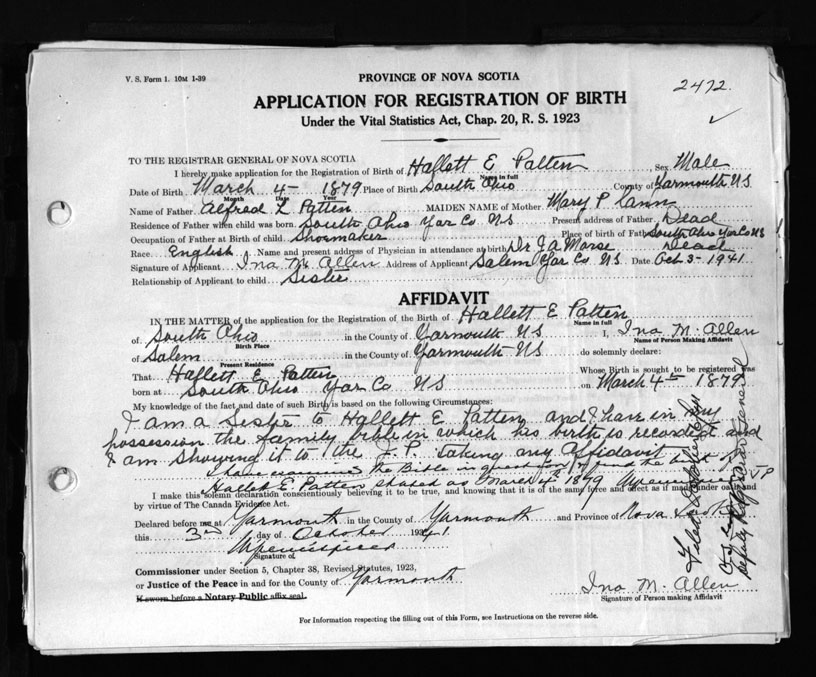 V. S. Form 1. 10M 1-39
PROVINCE OF NOVA SCOTIA
2472.
APPLICATION FOR REGISTRATION OF BIRTH
Under the Vital Statistics Act, Chap. 20, R. S. 1923
TO THE REGISTRAR GENERAL OF NOVA SCOTIA
I hereby make application for the Registration of Birth of Hallett E Patten Sex Male
Name in full
Date of Birth March 4- 1879 Place of Birth South Ohio County of Yarmouth NS
Month Date Year
Name of Father Alfred L Patten MAIDEN NAME of Mother Mary P Cann
Residence of Father when child was born South Ohio Yar Co NS Present address of Father Dead
Occupation of Father at Birth of child Shoemaker Place of birth of Father South Ohio Yar Co NS
Race English Name and present address of Physician in attendance at birth Dr J A Morse Dead
Signature of Applicant Ina M Allen Address of Applicant Salem Yar Co NS Date Oct 3- 1941
Relationship of Applicant to child Sister
AFFIDAVIT
IN THE MATTER of the application for the Registration of the Birth of Hallett E Patten
Name in full
of South Ohio in the County of Yarmouth NS I, Ina M. Allen
Birth Place Name of Person Making Affidavit
of Salem in the County of Yarmouth NS do solemnly declare:
Present Residence
That Hallett E Patten Whose Birth is sought to be registered was
born at South Ohio Yar Co NS on March 4th 1879
My knowledge of the fact and date of such Birth is based on the following Circumstances:
I am a sister to Hallett E Patten and I have in my
possession the family bible in which his birth is recorded and
I am showing it to the J. P. taking my Affidavit
I have examined the Bible in question & find the birth of
Hallett E. Patten stated as March 4th 1879 JP
I make this solemn declaration conscientiously believing it to be true, and knowing that it is of the same force and effect as if made under oath and
by virtue of The Canada Evidence Act.
Declared before me at Yarmouth in the County of Yarmouth and Province of Nova Scotia
this 3rd day of October 1941
Signature of
Commissioner under Section 5, Chapter 38, Revised Statutes, 1923,
or Justice of the Peace in and for the County of Yarmouth
If sworn before a Notary Public affix seal.
Ina M. Allen
Signature of Person making Affidavit
For Information respecting the filling out of this Form, see Instructions on the reverse side.
Deputy Registrar General